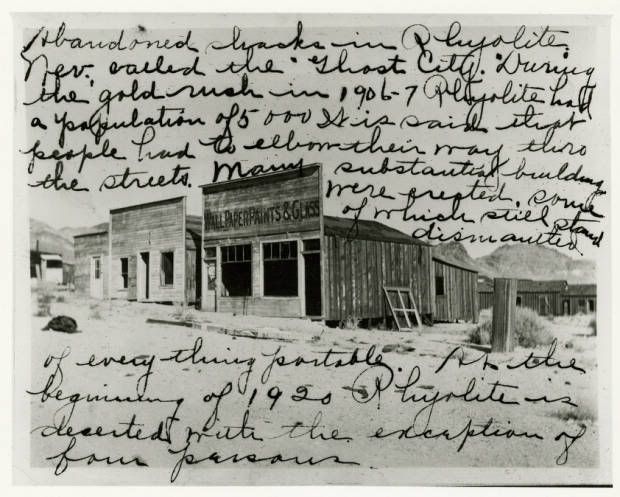 Abandoned shacks in Rhyolite,
Nev. called the "Ghost City." During
the gold rush in 1906-7 Rhyolite had
a population of 5000 It is said that
people had to elbow their way thro
the streets. Many substantial building
were erected, some
of which still stand
dismantled
WALL PAPER PAINTS & GLASS
of everything portable. At the
beginning of 1920 Rhyolite is
deserted with the exception of
four persons